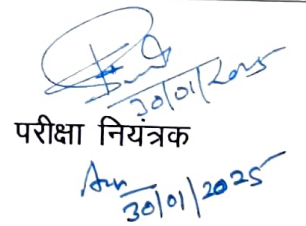 30/01/2025
परीक्षा नियंत्रक
30/01/2025